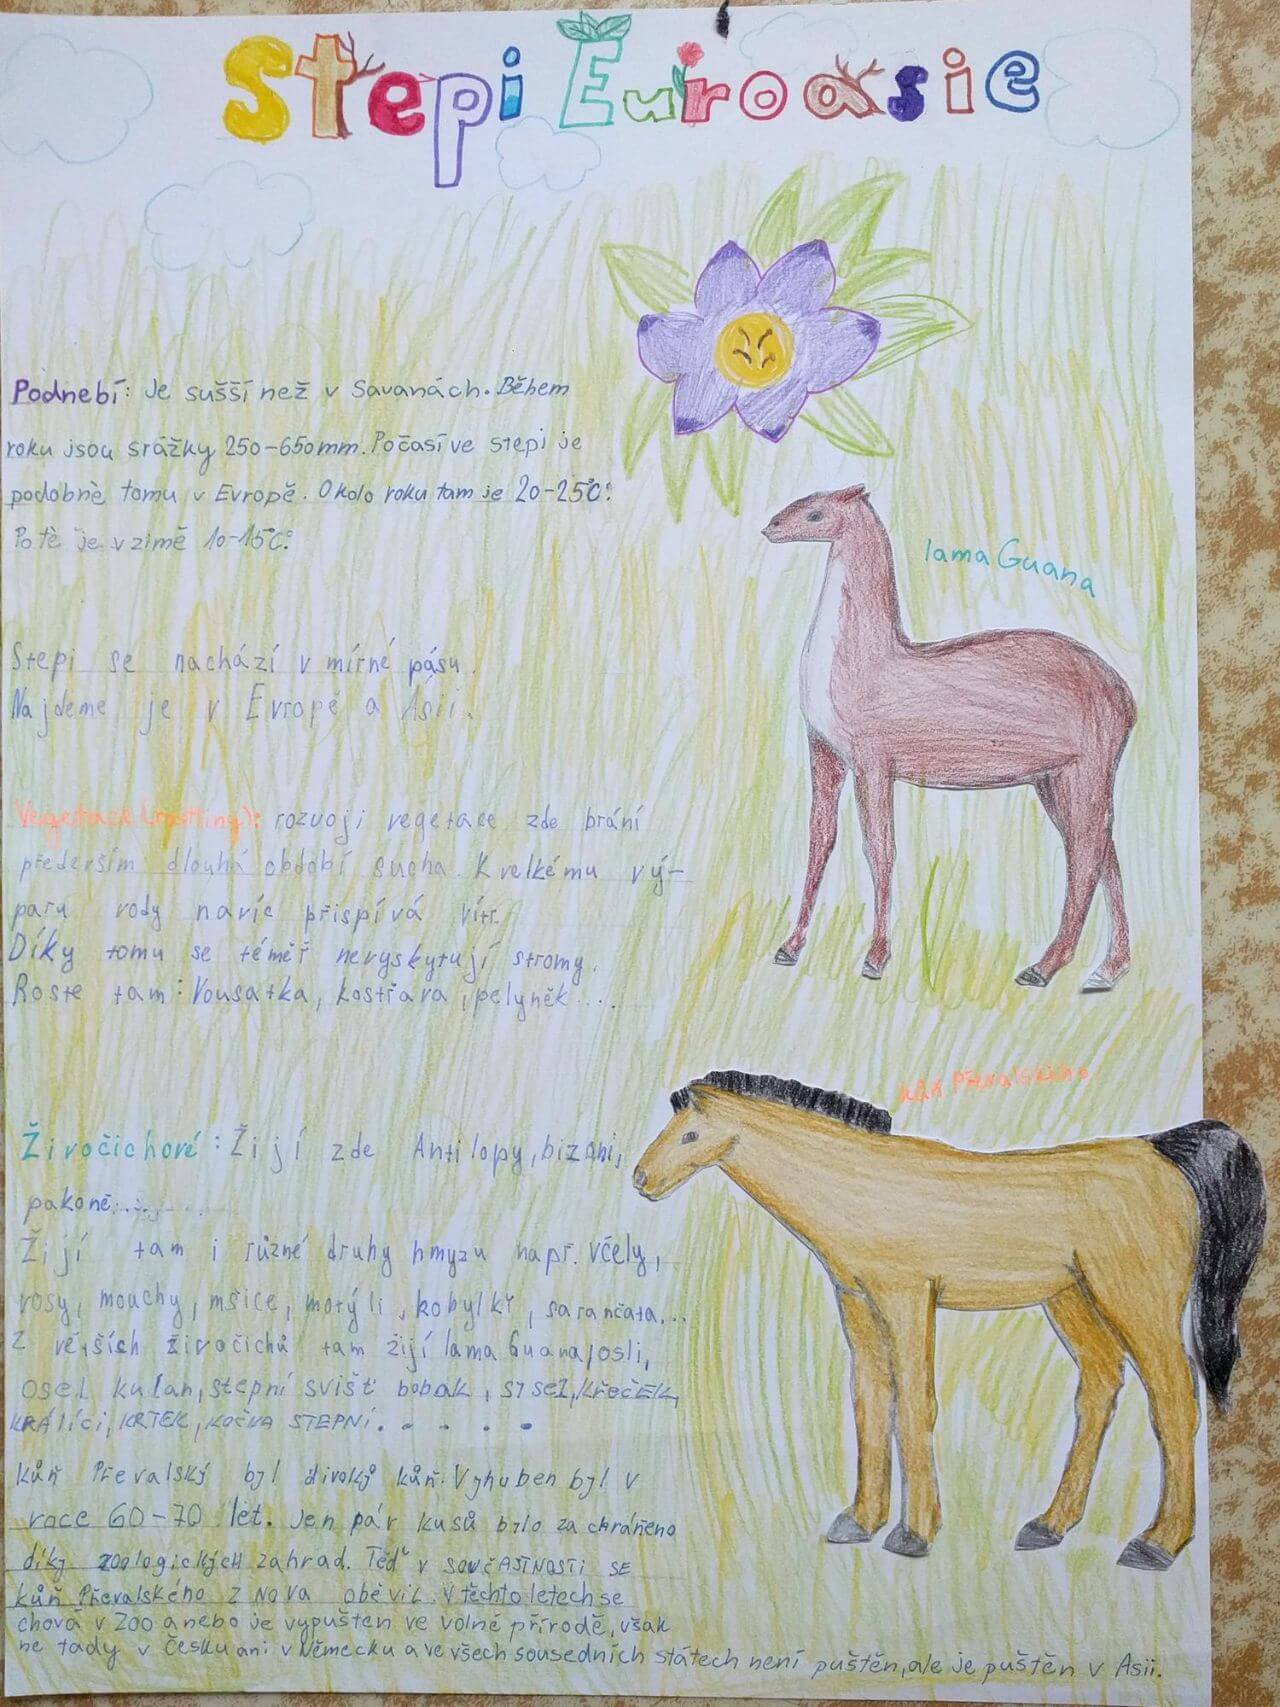 Stepi Euroasie
Podnebí: Je sušší než v Savanách. Během
roku jsou srážky 250-650mm. Počasí ve stepi je
podobně tomu v Evropě. Okolo roku tam je 20-25°C.
Potě je v zimě 10-15°C.
lama Guana
Stepi se nachází v mírné pásu.
Najdeme je v Evropě a Ásii.
Vegetace (rostliny): rozvoji vegetace zde brání
přederším dlouhá období sucha. K velkému vý-
paru vody navíc přispívá vítr.
Díky tomu se téměř nevyskytují stromy.
Roste tam: Vousatka, kostřava, pelyněk....
kůň Převalského
Živočichové: Žijí zde Antilopy, bizoni,
pakoně......
Žijí tam i různé druhy hmyzu např. včely,
vosy, mouchy, mšice, motýli, kobylky, sarančata...
Z větších živočichů tam žijí lama Guana, osli,
osel kulan, stepní svišť bobak, sysel, KřečEK,
KRÁlíci, KRTEK, KOČKA STEPNÍ. . . . .
kůň Převalský byl divoký kůň. Vyhuben byl v
roce 60-70 let. Jen pár kusů bylo zachráňeno
díky zoologických zahrad. Těď v SOUČASTNOSTI SE
kůň Převalského Z NOVA oběvil. V těchto letech se
chová v Zoo anebo je vypuštěn ve volné přírodě, však
ne tady v česku ani v Německu a ve všech sousedních státech není puštěn, ale je puštěn v Asii.